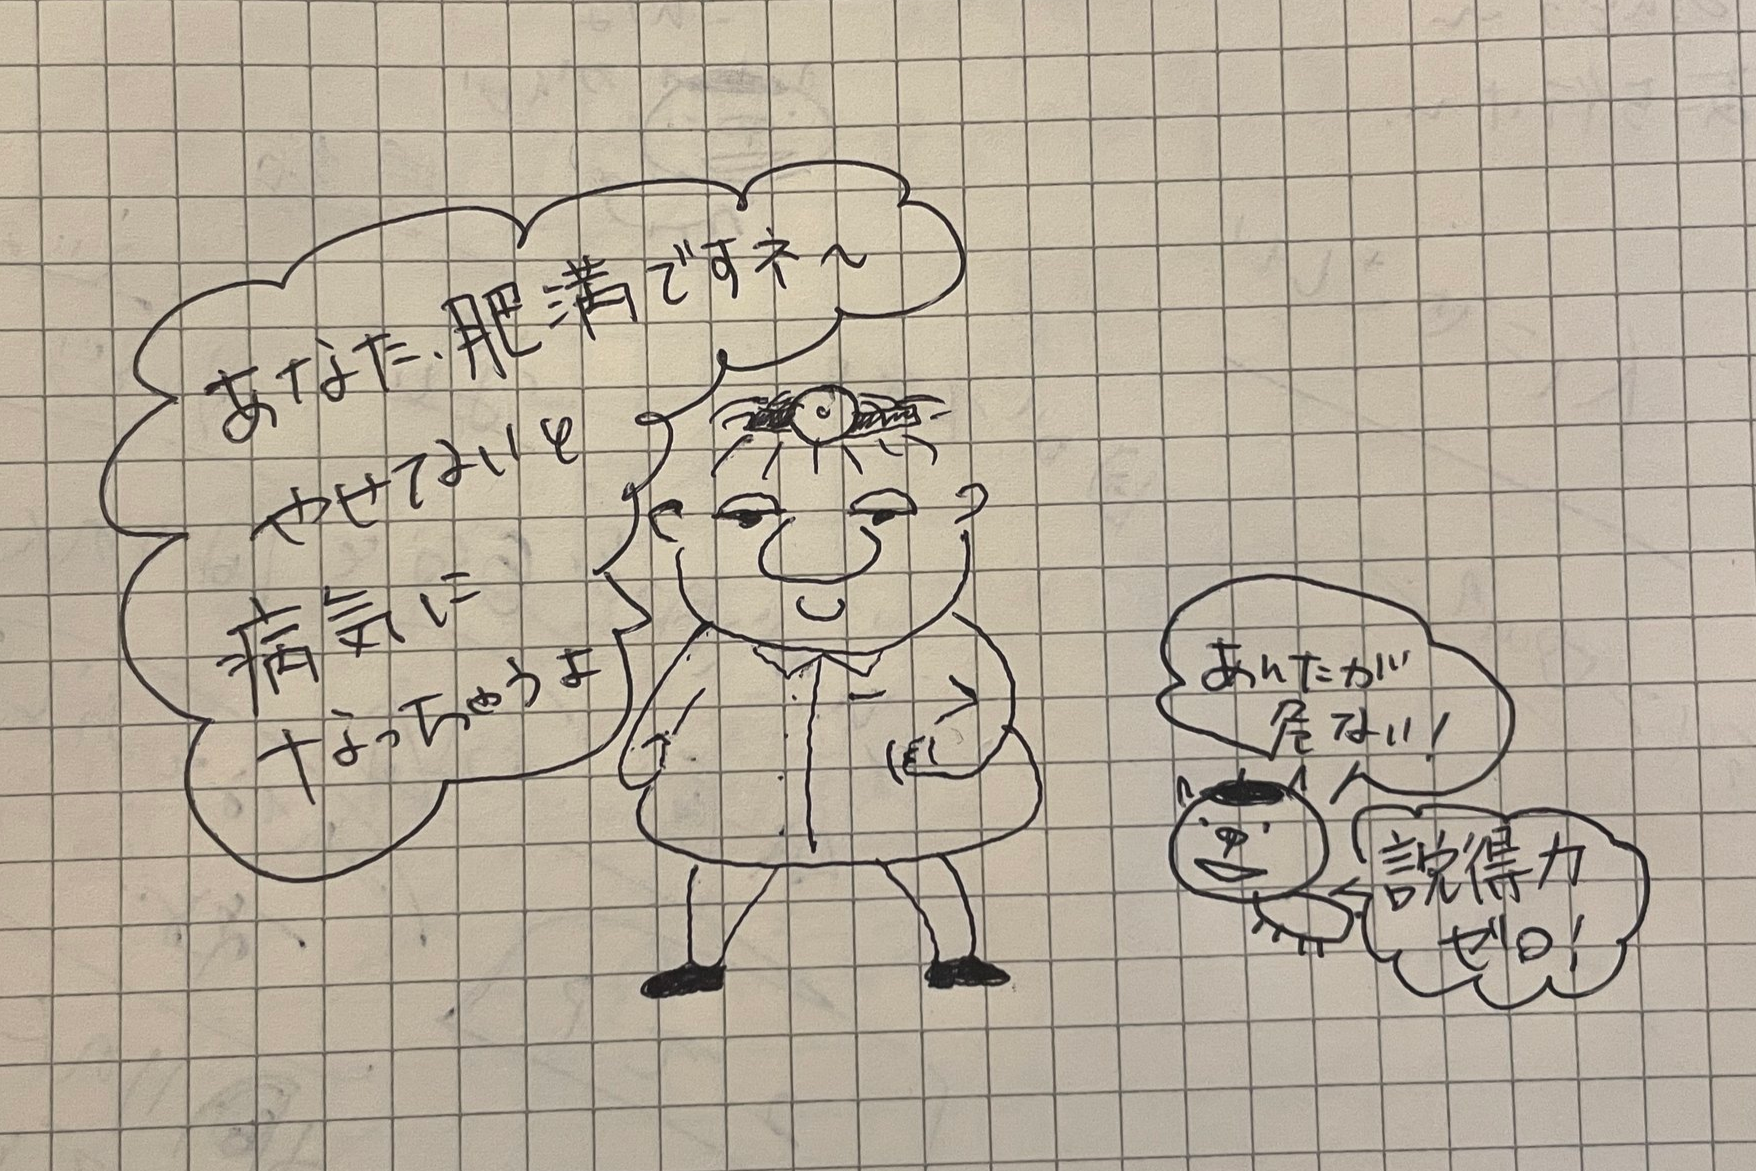 あなた、肥満ですネ〜
やせてないと
病気に
なっちゃうよ
あんたが
危ない!
説得力
ゼロ!